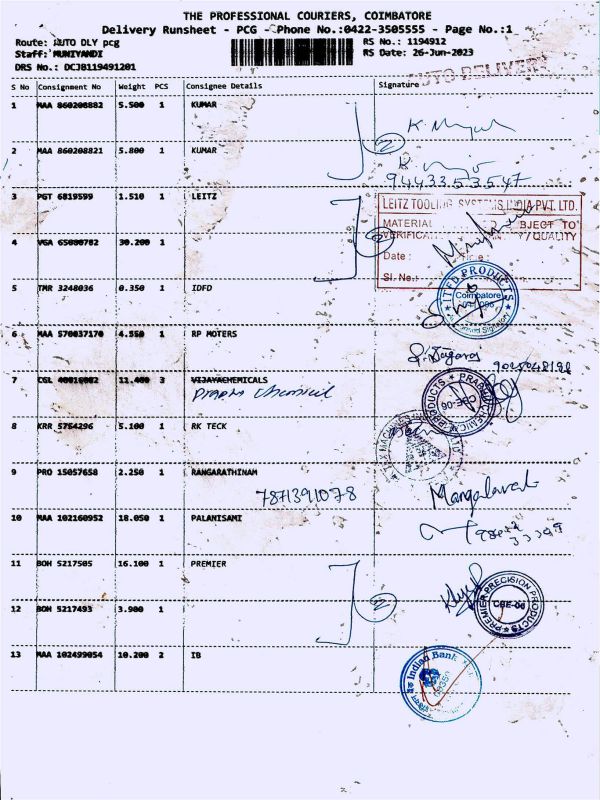 THE PROFESSIONAL COURIERS, COIMBATORE
Delivery Runsheet - PCG - Phone No.:0422-3505555 - Page No.:1
Route: AUTO DLY pcg
RS No.: 1194912
Staff: MUNIYANDI
RS Date: 26-Jun-2023
DRS No.: DCJ8119491201
AUTO DELIVERY
S No Consignment No Weight PCS Consignee Details Signature
1 MAA 860208882 5.500 1 KUMAR
2 MAA 860208821 5.800 1 KUMAR
2
94433 53547
3 PGT 6819599 1.510 1 LEITZ
LEITZ TOOLING SYSTEMS INDIA PVT. LTD.
MATERIAL
BJECT TO
VERIFICA
Y / QUALITY
Date :
Sl. No.:
4 VGA 65080782 30.200 1
2
5 TMR 3248036 0.350 1 IDFD
ITFD PRODUCTS
Coimbatore
6 MAA 570037170 4.550 1 RP MOTERS
7 CGL 40016002 11.400 3 VIJAYACHEMICALS
CBE-06
8 KRR 5754296 5.100 1 RK TECK
9 PRO 15057658 2.250 1 RANGARATHINAM
7871391078
10 MAA 102160952 18.050 1 PALANISAMI
11 BOH 5217505 16.100 1 PREMIER
PREMIER PRECISION PRODUCTS
CBE-06
12 BOH 5217493 3.900 1
2
13 MAA 102499054 10.200 2 IB
Indian Bank